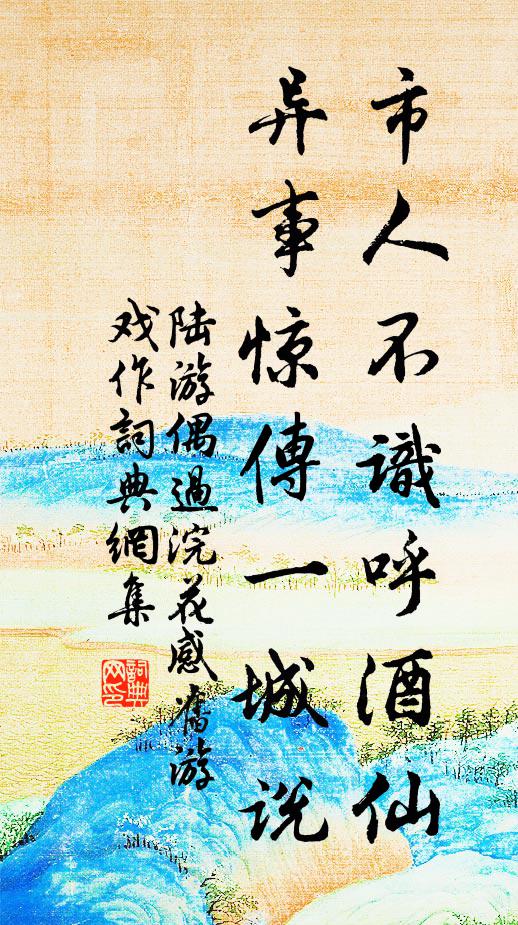 市人不識呼酒仙
异事惊傳一城说
陆游偶過浣花感舊游
戏作詞典網集
詞典网印